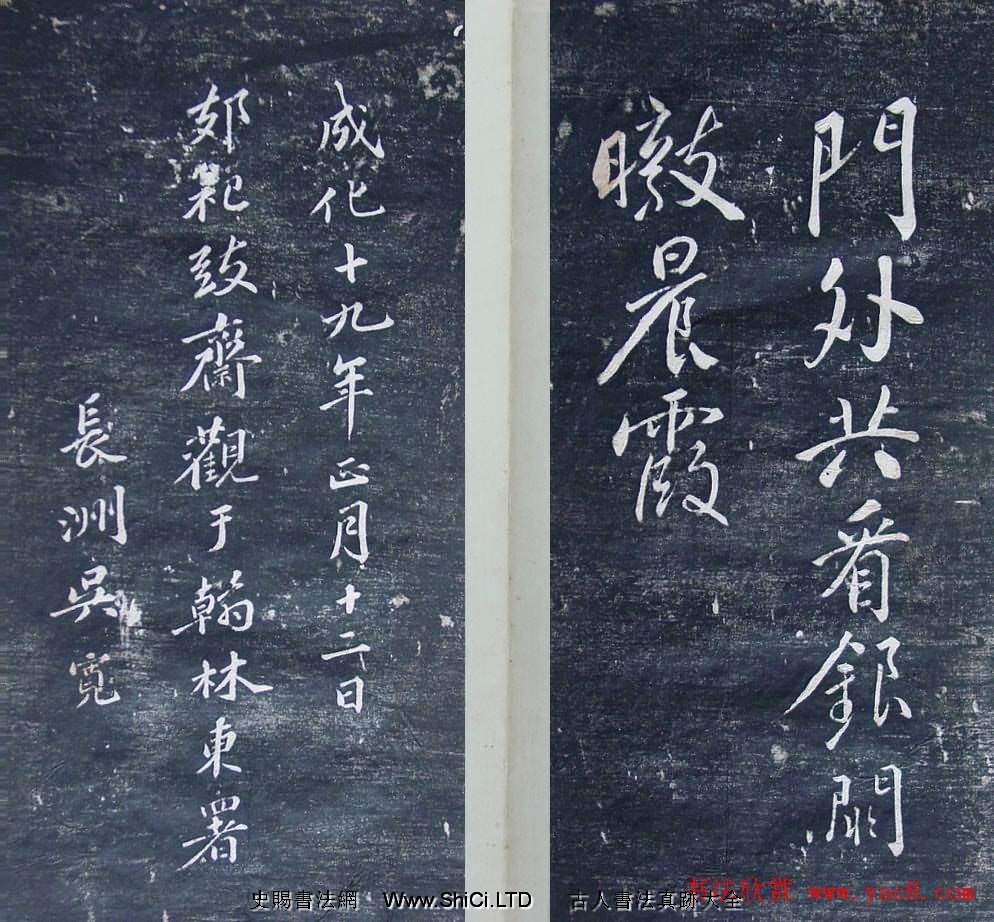 門外共看銀闕
暾晨霞
成化十九年正月十二日
郊祀致齋觀于翰林東署
長洲吳寬
史賜書法網 Www.ShiCi.LTD 古人書法真跡大全
书法欣赏 www.yac8.com